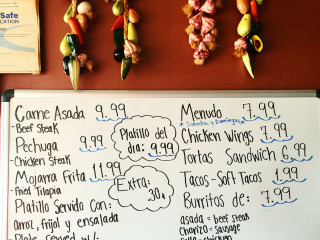 Safe
CATION
Carne Asada 9.99
-Beef Steak
Pechuga 9.99
-Chicken Steak
Mojarra Frita 11.99
-Fried Tilapia
Platillo Servido Con:
Arroz, frijol y ensalada
Plate served w/:
Platillo del
dia: 9.99
Extra:
.30¢
Menudo 7.99
*Sabados y Domingos*
Chicken Wings 7.99
Tortas Sandwich 6.99
Tacos-Soft Tacos 1.99
Burritos de: 7.99
asada = beef steak
Chorizo = Sausage
= chicken